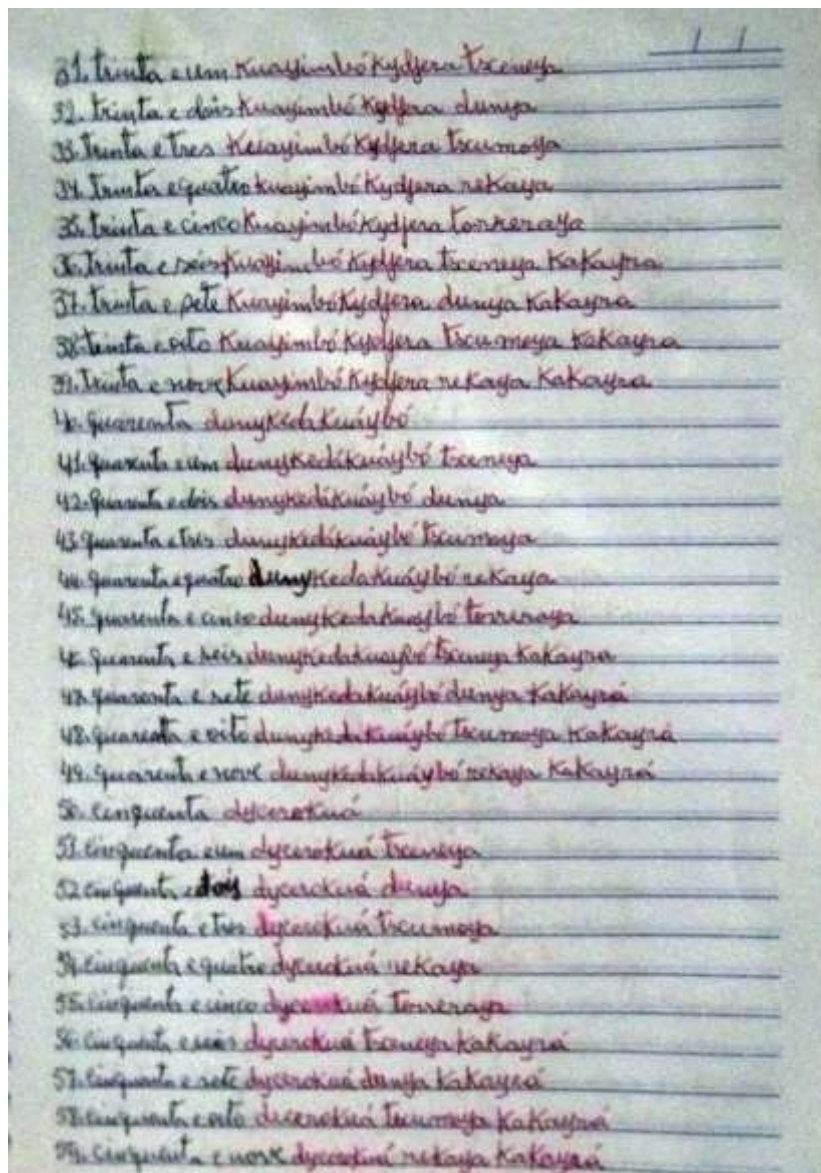 31. trinta e um Kuayimbó Kydjera tsceneya
32. trinta e dois Kuayimbó Kydjera dunya
33. trinta e tres Kuayimbó Kydjera tscumoya
34. trinta e quatro Kuayimbó Kydjera reKaya
35. trinta e cinco Kuayimbó Kydjera torreraya
36. trinta e seis Kuayimbó Kydjera tsceneya KaKayra
37. trinta e sete Kuayimbó Kydjera dunya KaKayra
38. trinta e oito Kuayimbó Kydjera tscumoya KaKayra
39. trinta e nove Kuayimbó Kydjera reKaya KaKayra
40. quarenta dunyKedaKuáybó
41. quarenta e um dunyKedaKuáybó tsceneya
42. quarenta e dois dunyKedaKuáybó dunya
43. quarenta e tres dunyKedaKuáybó tscumoya
44. quarenta e quatro dunyKedaKuáybó reKaya
45. quarenta e cinco dunyKedaKuaybó torreraya
46. quarenta e seis dunyKedaKuaybó tsceneya KaKayra
47. quarenta e sete dunyKedaKuáybó dunya KaKayrá
48. quarenta e oito dunyKedaKuáybó tscumoya KaKayrá
49. quarenta e nove dunyKedaKuáybó reKaya KaKayrá
50. cinquenta dyceroKuá
51. cinquenta e um dyceroKuá tsceneya
52 cinquenta e dois dyceroKuá dunya
53. cinquenta e tres dyceroKuá tscumoya
54. cinquenta e quatro dyceroKuá reKaya
55. cinquenta e cinco dyceroKuá torreraya
56. cinquenta e seis dyceroKuá tsceneya KaKayrá
57. cinquenta e sete dyceroKuá dunya KaKayrá
58. cinquenta e oito diceroKuá tscumoya KaKayrá
59. cinquenta e nove dyceroKuá reKaya KaKayrá